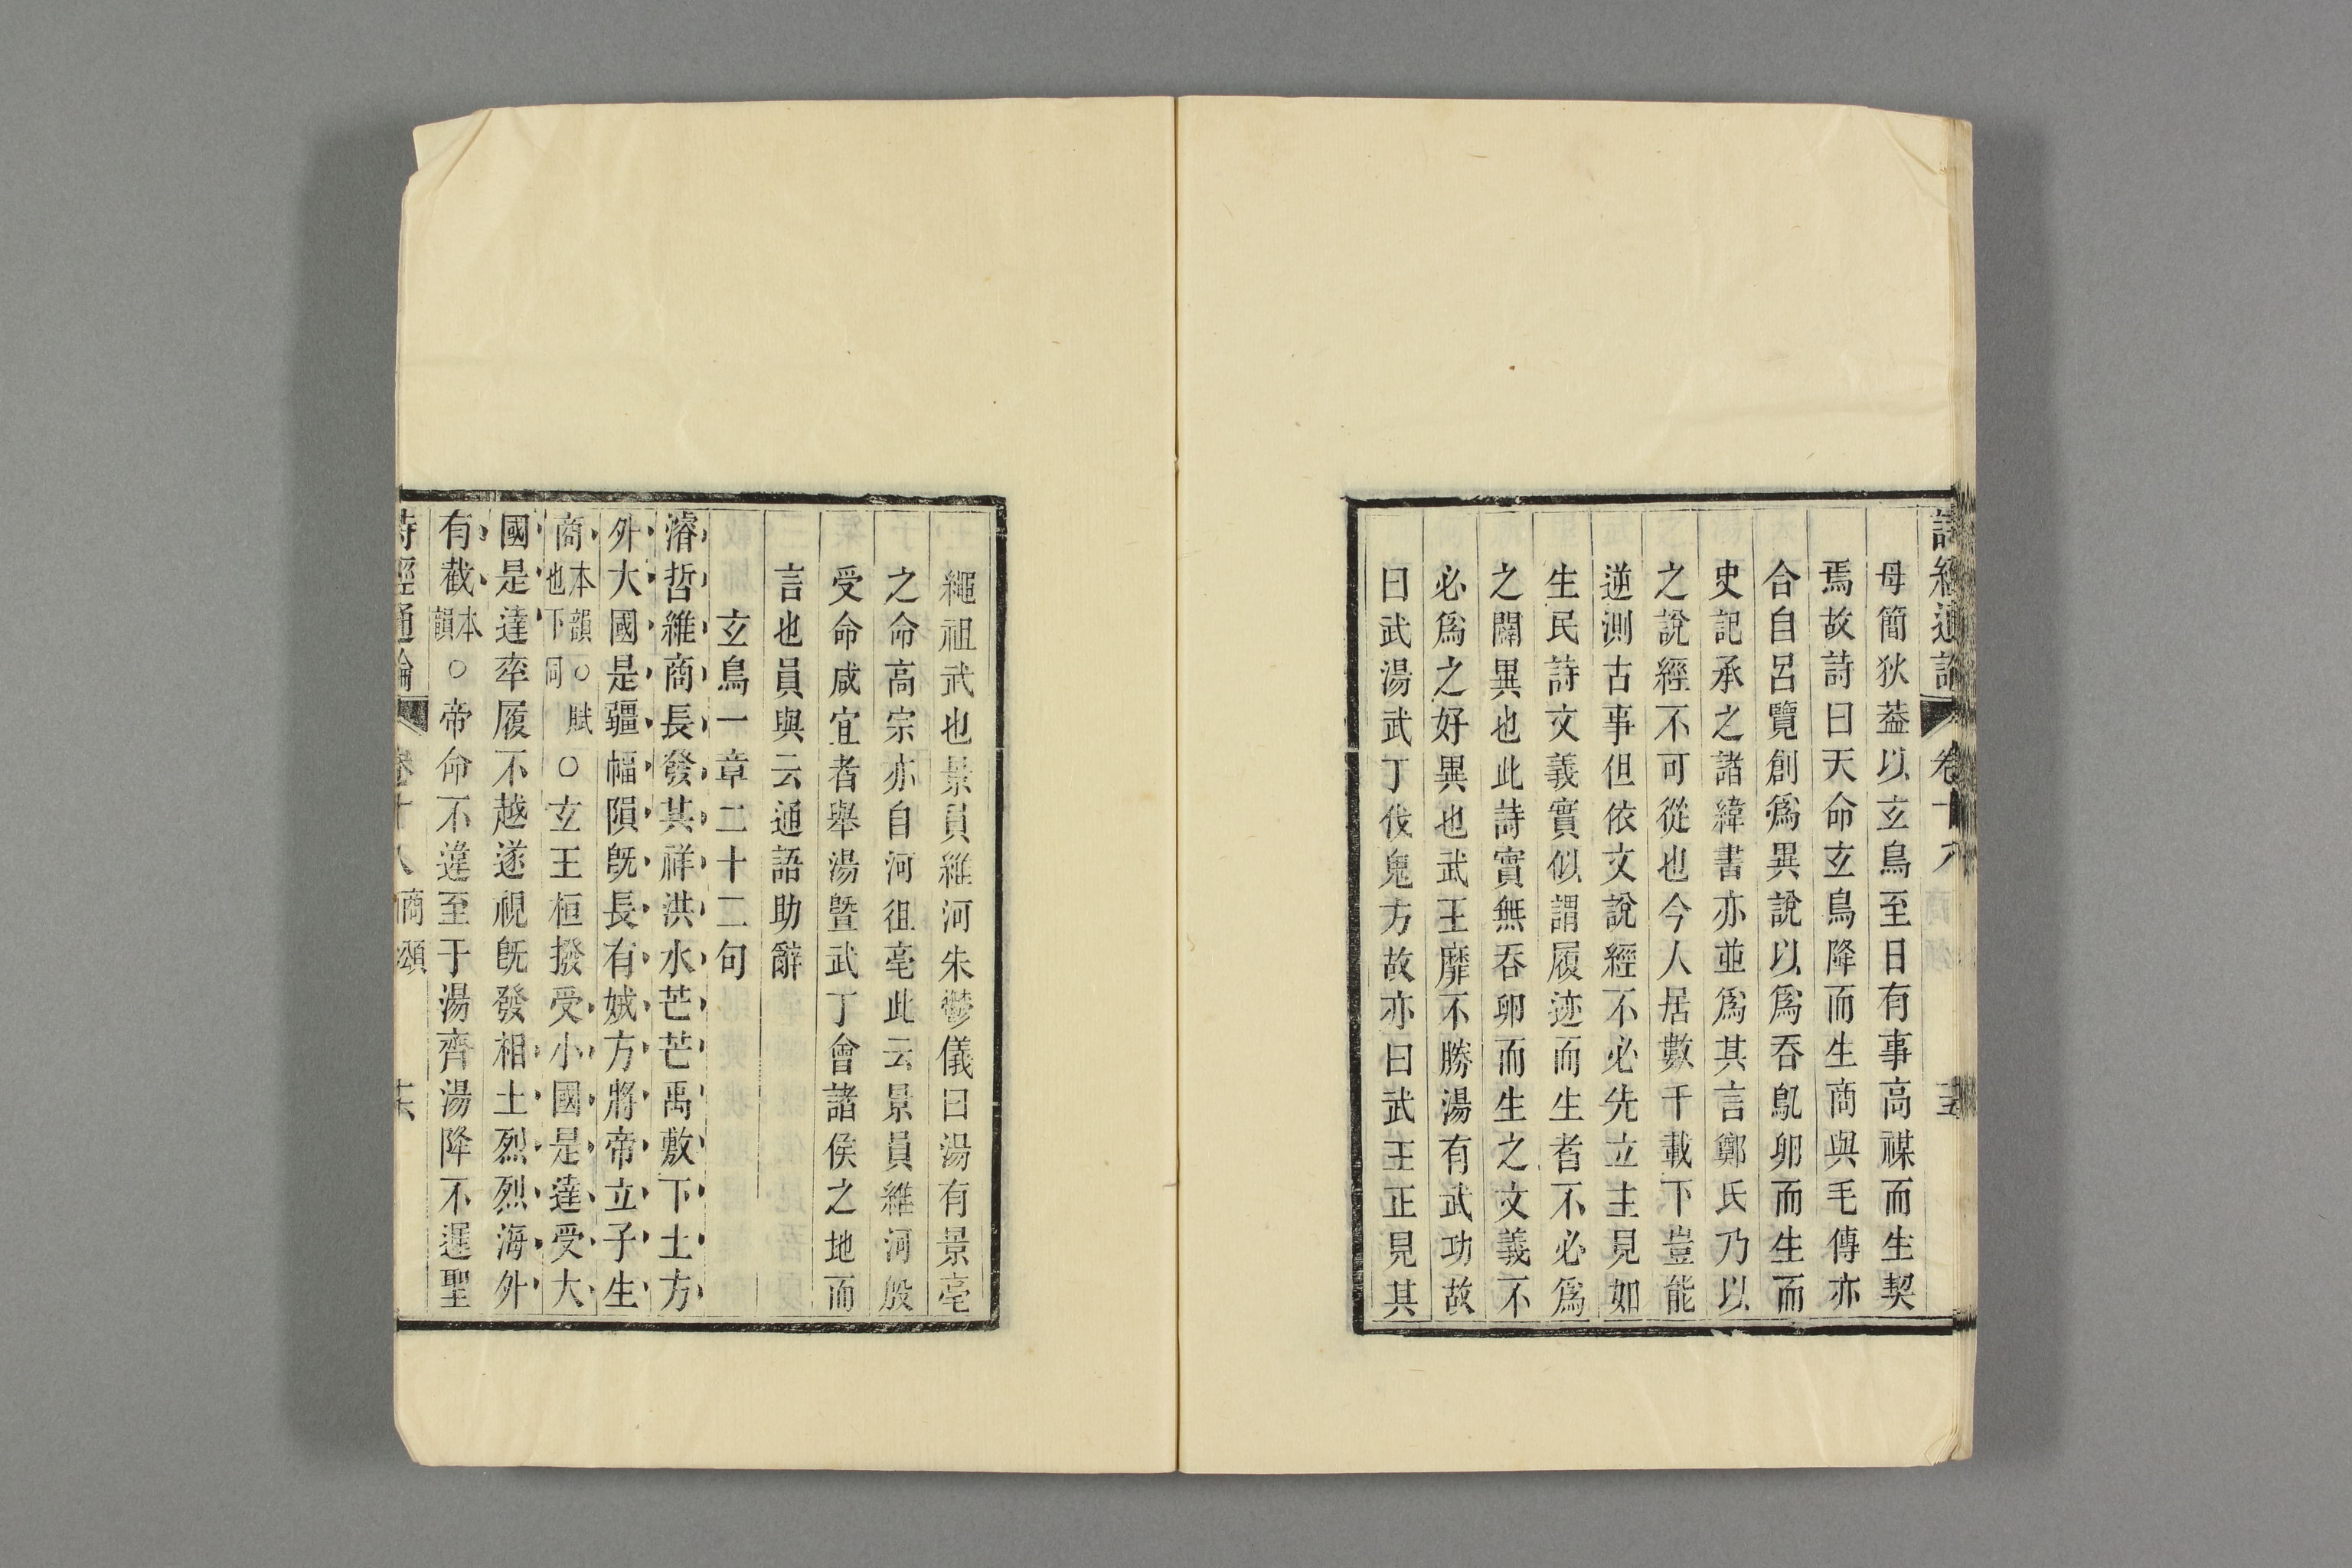 詩經通論 卷十八
母簡狄葢以玄鳥至日有事高禖而生契
焉故詩曰天命玄鳥降而生商與毛傳亦
合自呂覽創爲異說以爲吞鳦卵而生而
史記承之諸緯書亦並爲其言鄭氏乃以
之說經不可從也今人居數千載下豈能
逆測古事但依文說經不必先立主見如
生民詩文義實似謂履迹而生者不必爲
之闢異也此詩實無吞卵而生之文義不
必爲之好異也武王靡不勝湯有武功故
曰武湯武丁伐鬼方故亦曰武王正見其
繩祖武也景員維河朱鬱儀曰湯有景亳
之命高宗亦自河徂亳此云景員維河殷
受命咸宜者舉湯曁武丁會諸侯之地而
言也員與云通語助辭
玄鳥一章二十二句
濬哲維商長發其祥洪水芒芒禹敷下土方
外大國是疆幅隕旣長有娀方將帝立子生
商本韻○賦也下同○玄王桓撥受小國是達受大
國是達率履不越遂視旣發相土烈烈海外
有截本韻○帝命不違至于湯齊湯降不遲聖
詩經通論 卷十八商頌 十六